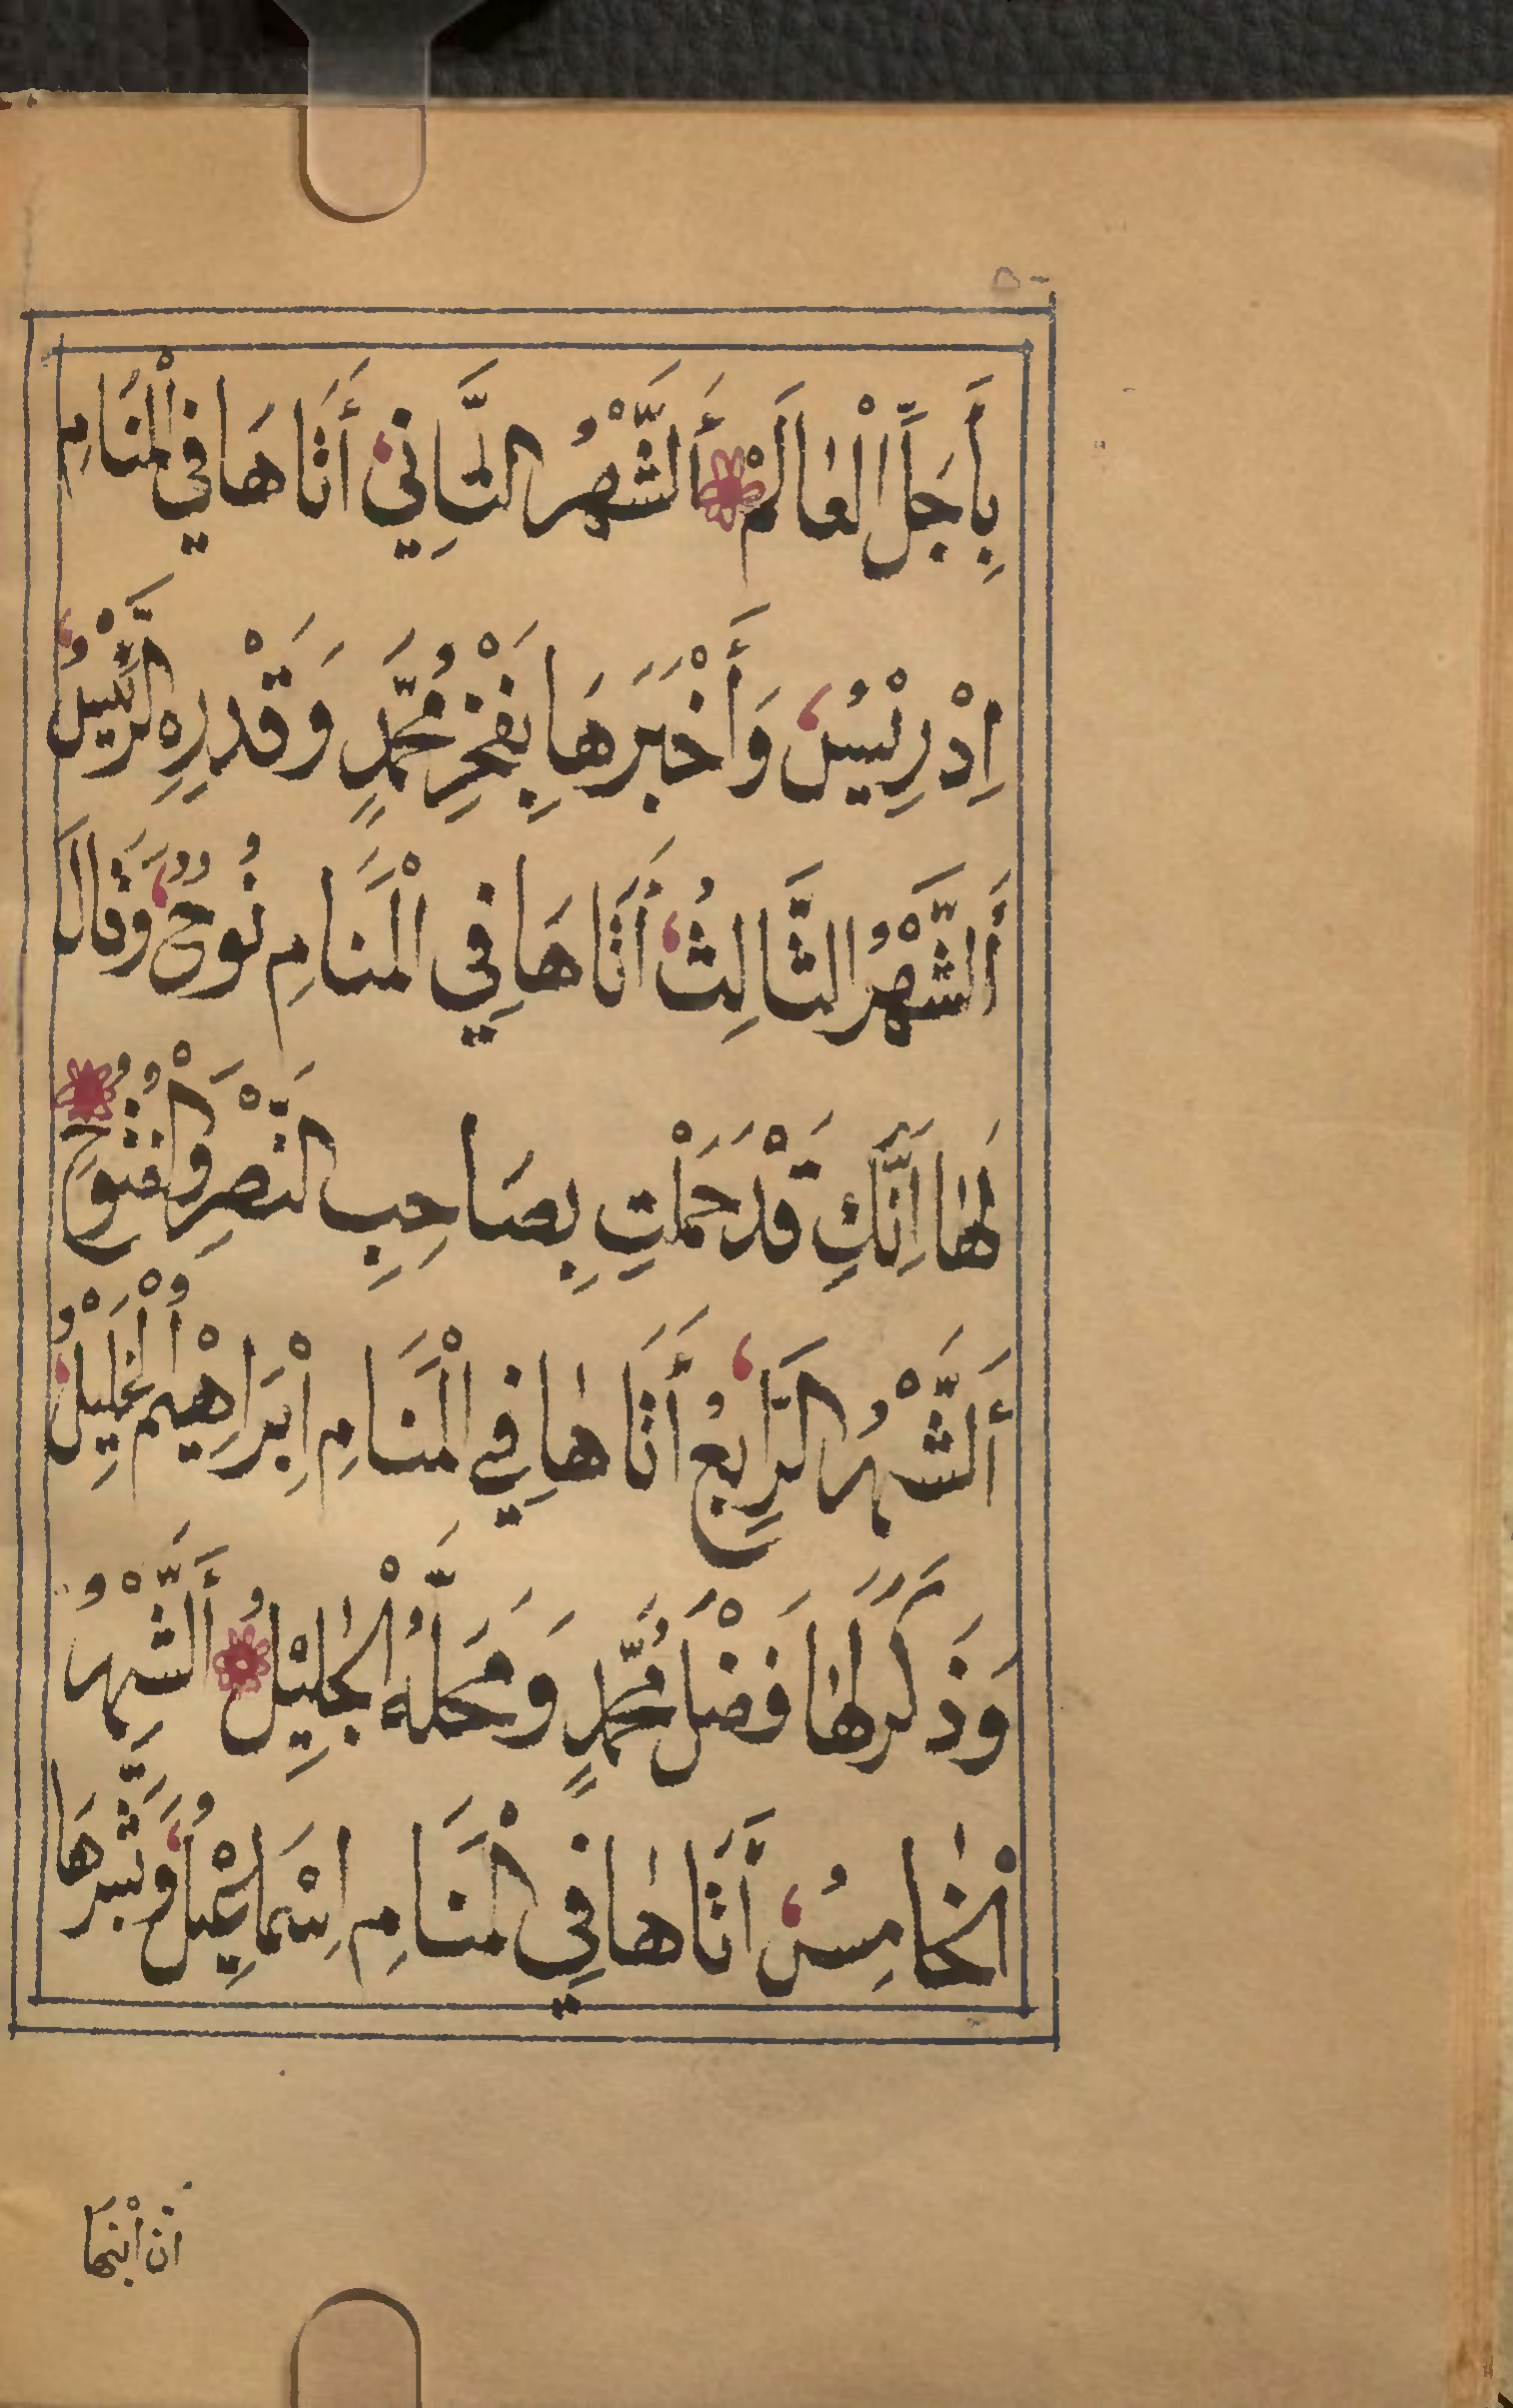 بِأَجَلِّ الْعَالَمْ أَلشَّهْرُ الثَّانِي أَتَاهَا فِي الْمَنَامِ
اِدْرِيْسُ وَأَخْبَرَهَا بِفَخْرِ مُحَمَّدٍ وَقَدْرِهِ الرَّئِيْسُ
أَلشَّهْرُ الثَّالِثُ أَتَاهَا فِي الْمَنَامِ نُوحٌ وَقَالَ
لَهَا اِنَّكِ قَدْ حَمَلْتِ بِصَاحِبِ النَّصْرِ وَالْفُتُوحِ
أَلشَّهْرُ الرَّابِعُ أَتَاهَا فِي الْمَنَامِ اِبْرَاهِيْمُ الْخَلِيْلُ
وَذَكَرَ لَهَا فَضْلَ مُحَمَّدٍ وَمَحَلَّهُ الْجَلِيْلُ أَلشَّهْرُ
الْخَامِسُ أَتَاهَا فِي الْمَنَامِ اِسْمَاعِيْلُ وَبَشَّرَهَا
اَنَّ ابْنَهَا